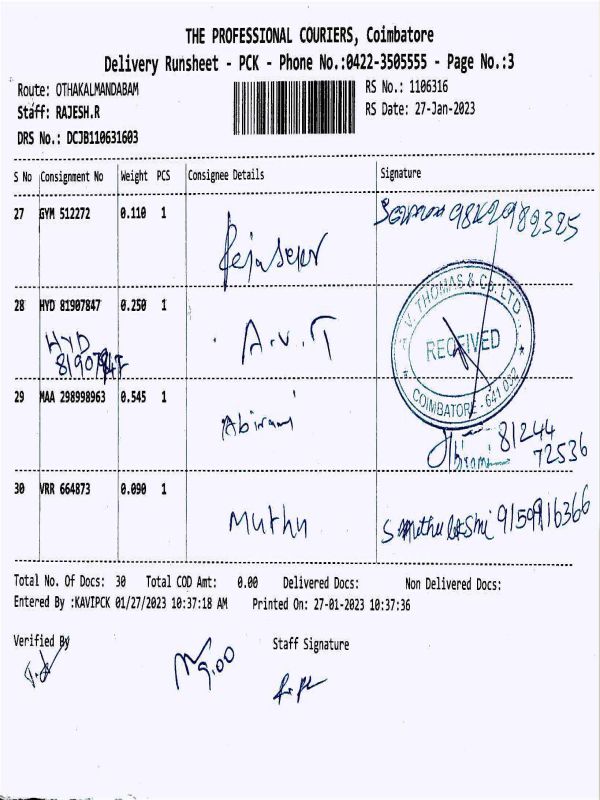 THE PROFESSIONAL COURIERS, Coimbatore
Delivery Runsheet - PCK - Phone No.:0422-3505555 - Page No.:3
Route: OTHAKALMANDABAM RS No.: 1106316
Staff: RAJESH.R RS Date: 27-Jan-2023
DRS No.: DCJB110631603
S No Consignment No Weight PCS Consignee Details Signature
27 GYM 512272 0.110 1
28 HYD 81907847 0.250 1 A.V.T
HYD
81907847
A.V. THOMAS & Co. LTD.
RECEIVED
COIMBATORE - 641 032
29 MAA 298998963 0.545 1 Abirami
Abirami 81244
72536
30 VRR 664873 0.090 1 Muthu 9159916366
Total No. Of Docs: 30 Total COD Amt: 0.00 Delivered Docs: Non Delivered Docs:
Entered By :KAVIPCK 01/27/2023 10:37:18 AM Printed On: 27-01-2023 10:37:36
Verified By Staff Signature